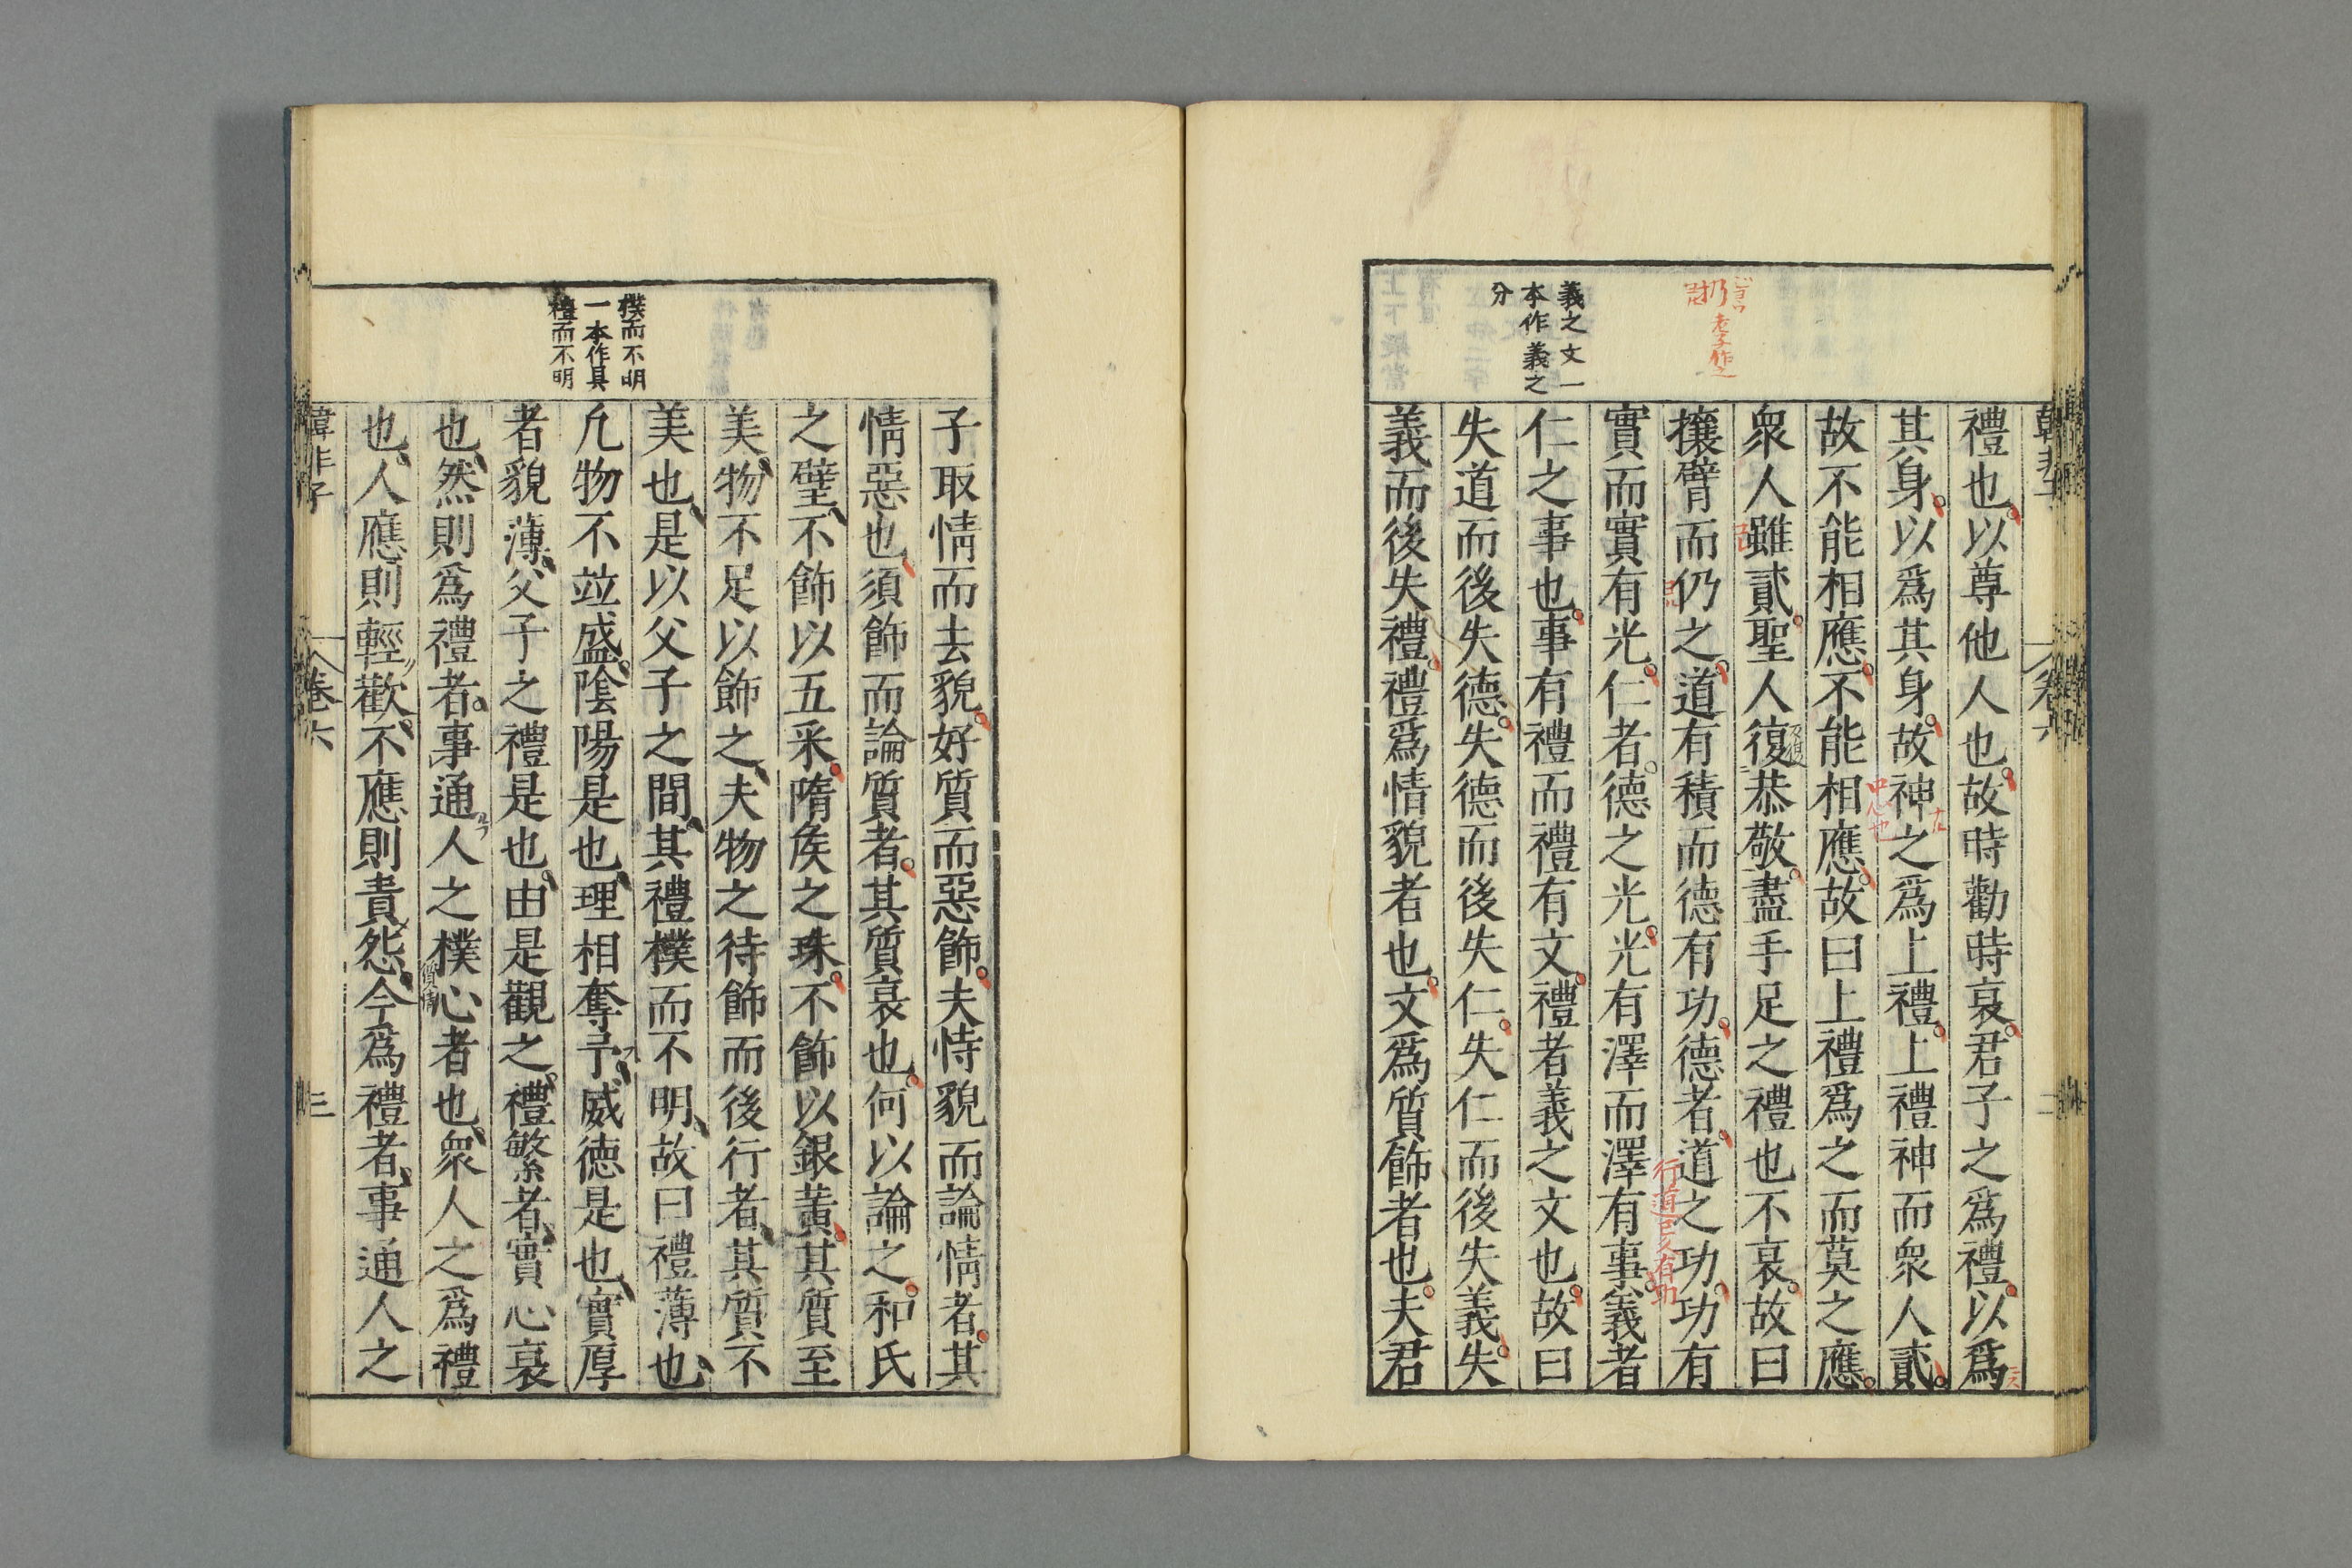 禮也以尊他人也故時勸時衰君子之爲禮以爲
其身以爲其身故神之爲上禮上禮神而衆人貳
故不能相應不能相應故曰上禮爲之而莫之應
衆人雖貳聖人復恭敬盡手足之禮也不衰故曰
攘臂而仍之道有積而德有功德者道之功功有
實而實有光仁者德之光光有澤而澤有事義者
仁之事也事有禮而禮有文禮者義之文也故曰
失道而後失德失德而後失仁失仁而後失義失
義而後失禮禮爲情貌者也文爲質飾者也夫君
義之文一
本作義之
分
老子作
行道已久有功
卷六
子取情而去貌好質而惡飾夫恃貌而論情者其
情惡也須飾而論質者其質衰也何以論之和氏
之璧不飾以五采隋矦之珠不飾以銀黃其質至
美物不足以飾之夫物之待飾而後行者其質不
美也是以父子之間其禮樸而不明故曰禮薄也
凡物不竝盛陰陽是也理相奪予威德是也實厚
者貌薄父子之禮是也由是觀之禮繁者實心衰
也然則爲禮者事通人之樸心者也衆人之爲禮
也人應則輕歡不應則責怨今爲禮者事通人之
樸而不明
一本作具
禮而不明
韓非子
卷六
三